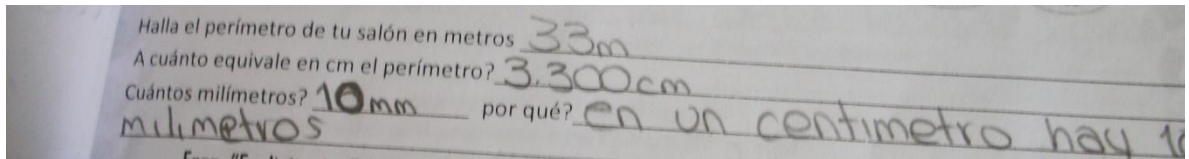 Halla el perímetro de tu salón en metros 33m
A cuánto equivale en cm el perímetro? 3.300cm
Cuántos milímetros? 10mm por qué? en un centimetro hay 10
milimetros